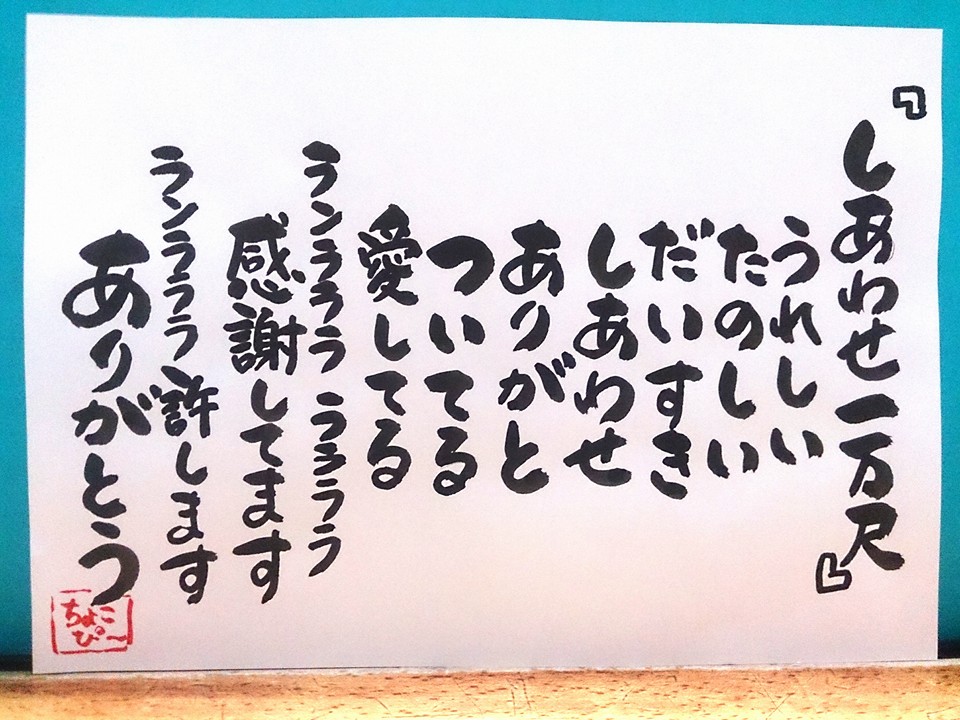 『しあわせ一万尺』
うれしい
たのしい
だいすき
しあわせ
ありがと
ついてる
愛してる
ランラララ ララララ
感謝してます
ランララララ許します
ありがとう
ちょこ
ぴ〜